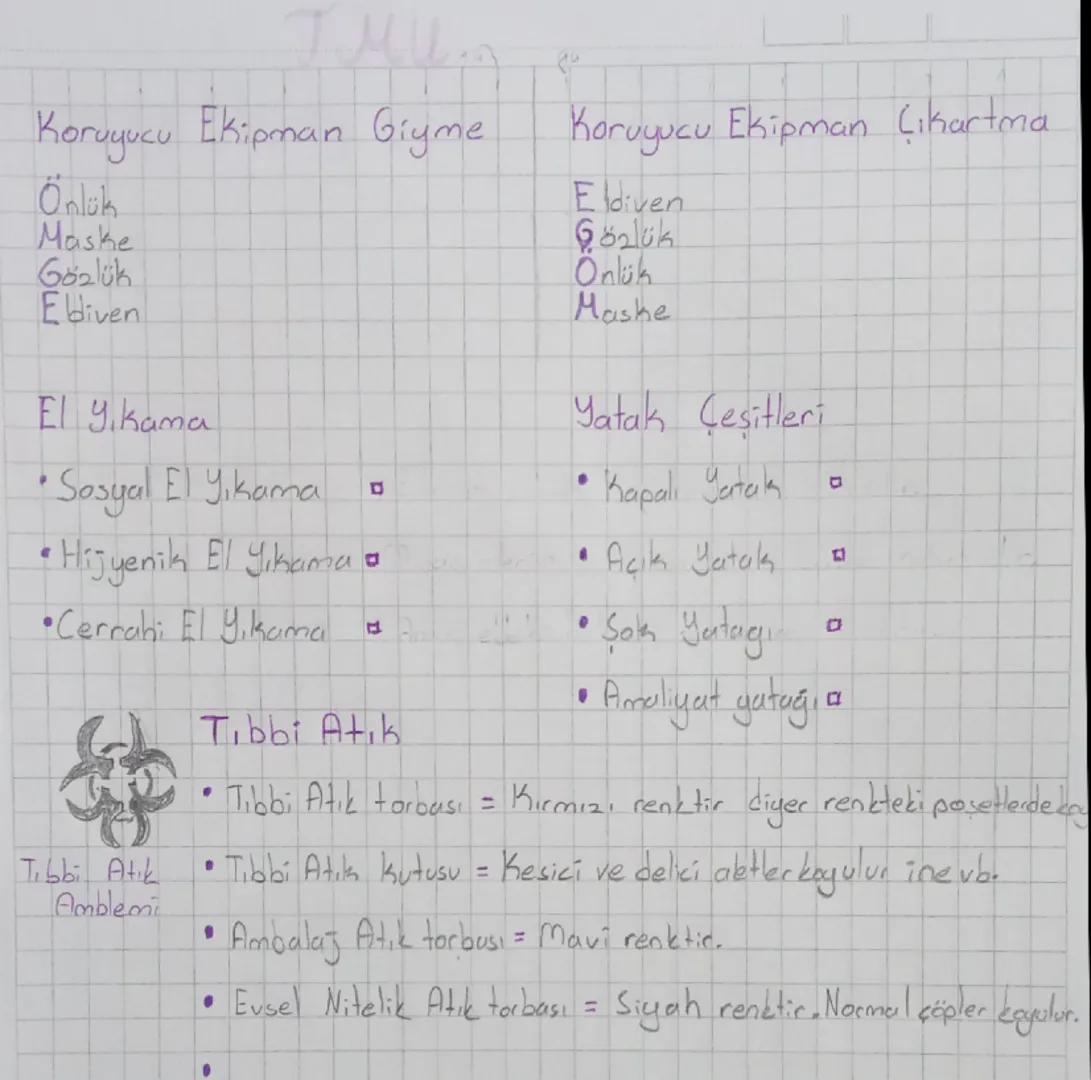 T.M.U.
Koruyucu Ekipman Giyme
Önlük
Maske
Gözlük
Eldiven
Koruyucu Ekipman Çıkartma
Eldiven
Gözlük
Önlük
Maske
El Yıkama
• Sosyal El Yıkama
• Hijyenik El Yıkama
• Cerrahi El Yıkama
Yatak Çeşitleri
• Kapalı Yatak
• Açık Yatak
• Şok Yatagı
• Amaliyat yatağı
Tıbbi Atık
Tıbbi Atık
Amblemi
• Tıbbi Atık torbası = Kırmızı renktir diger renkteki
• Tıbbi Atık kutusu = Kesici ve delici aletler koyulur ine vb.
• Ambalaj Atık torbası = Mavi renktir.
• Evsel Nitelik Atık torbası = Siyah renktir. Normal çöpler koyulur.